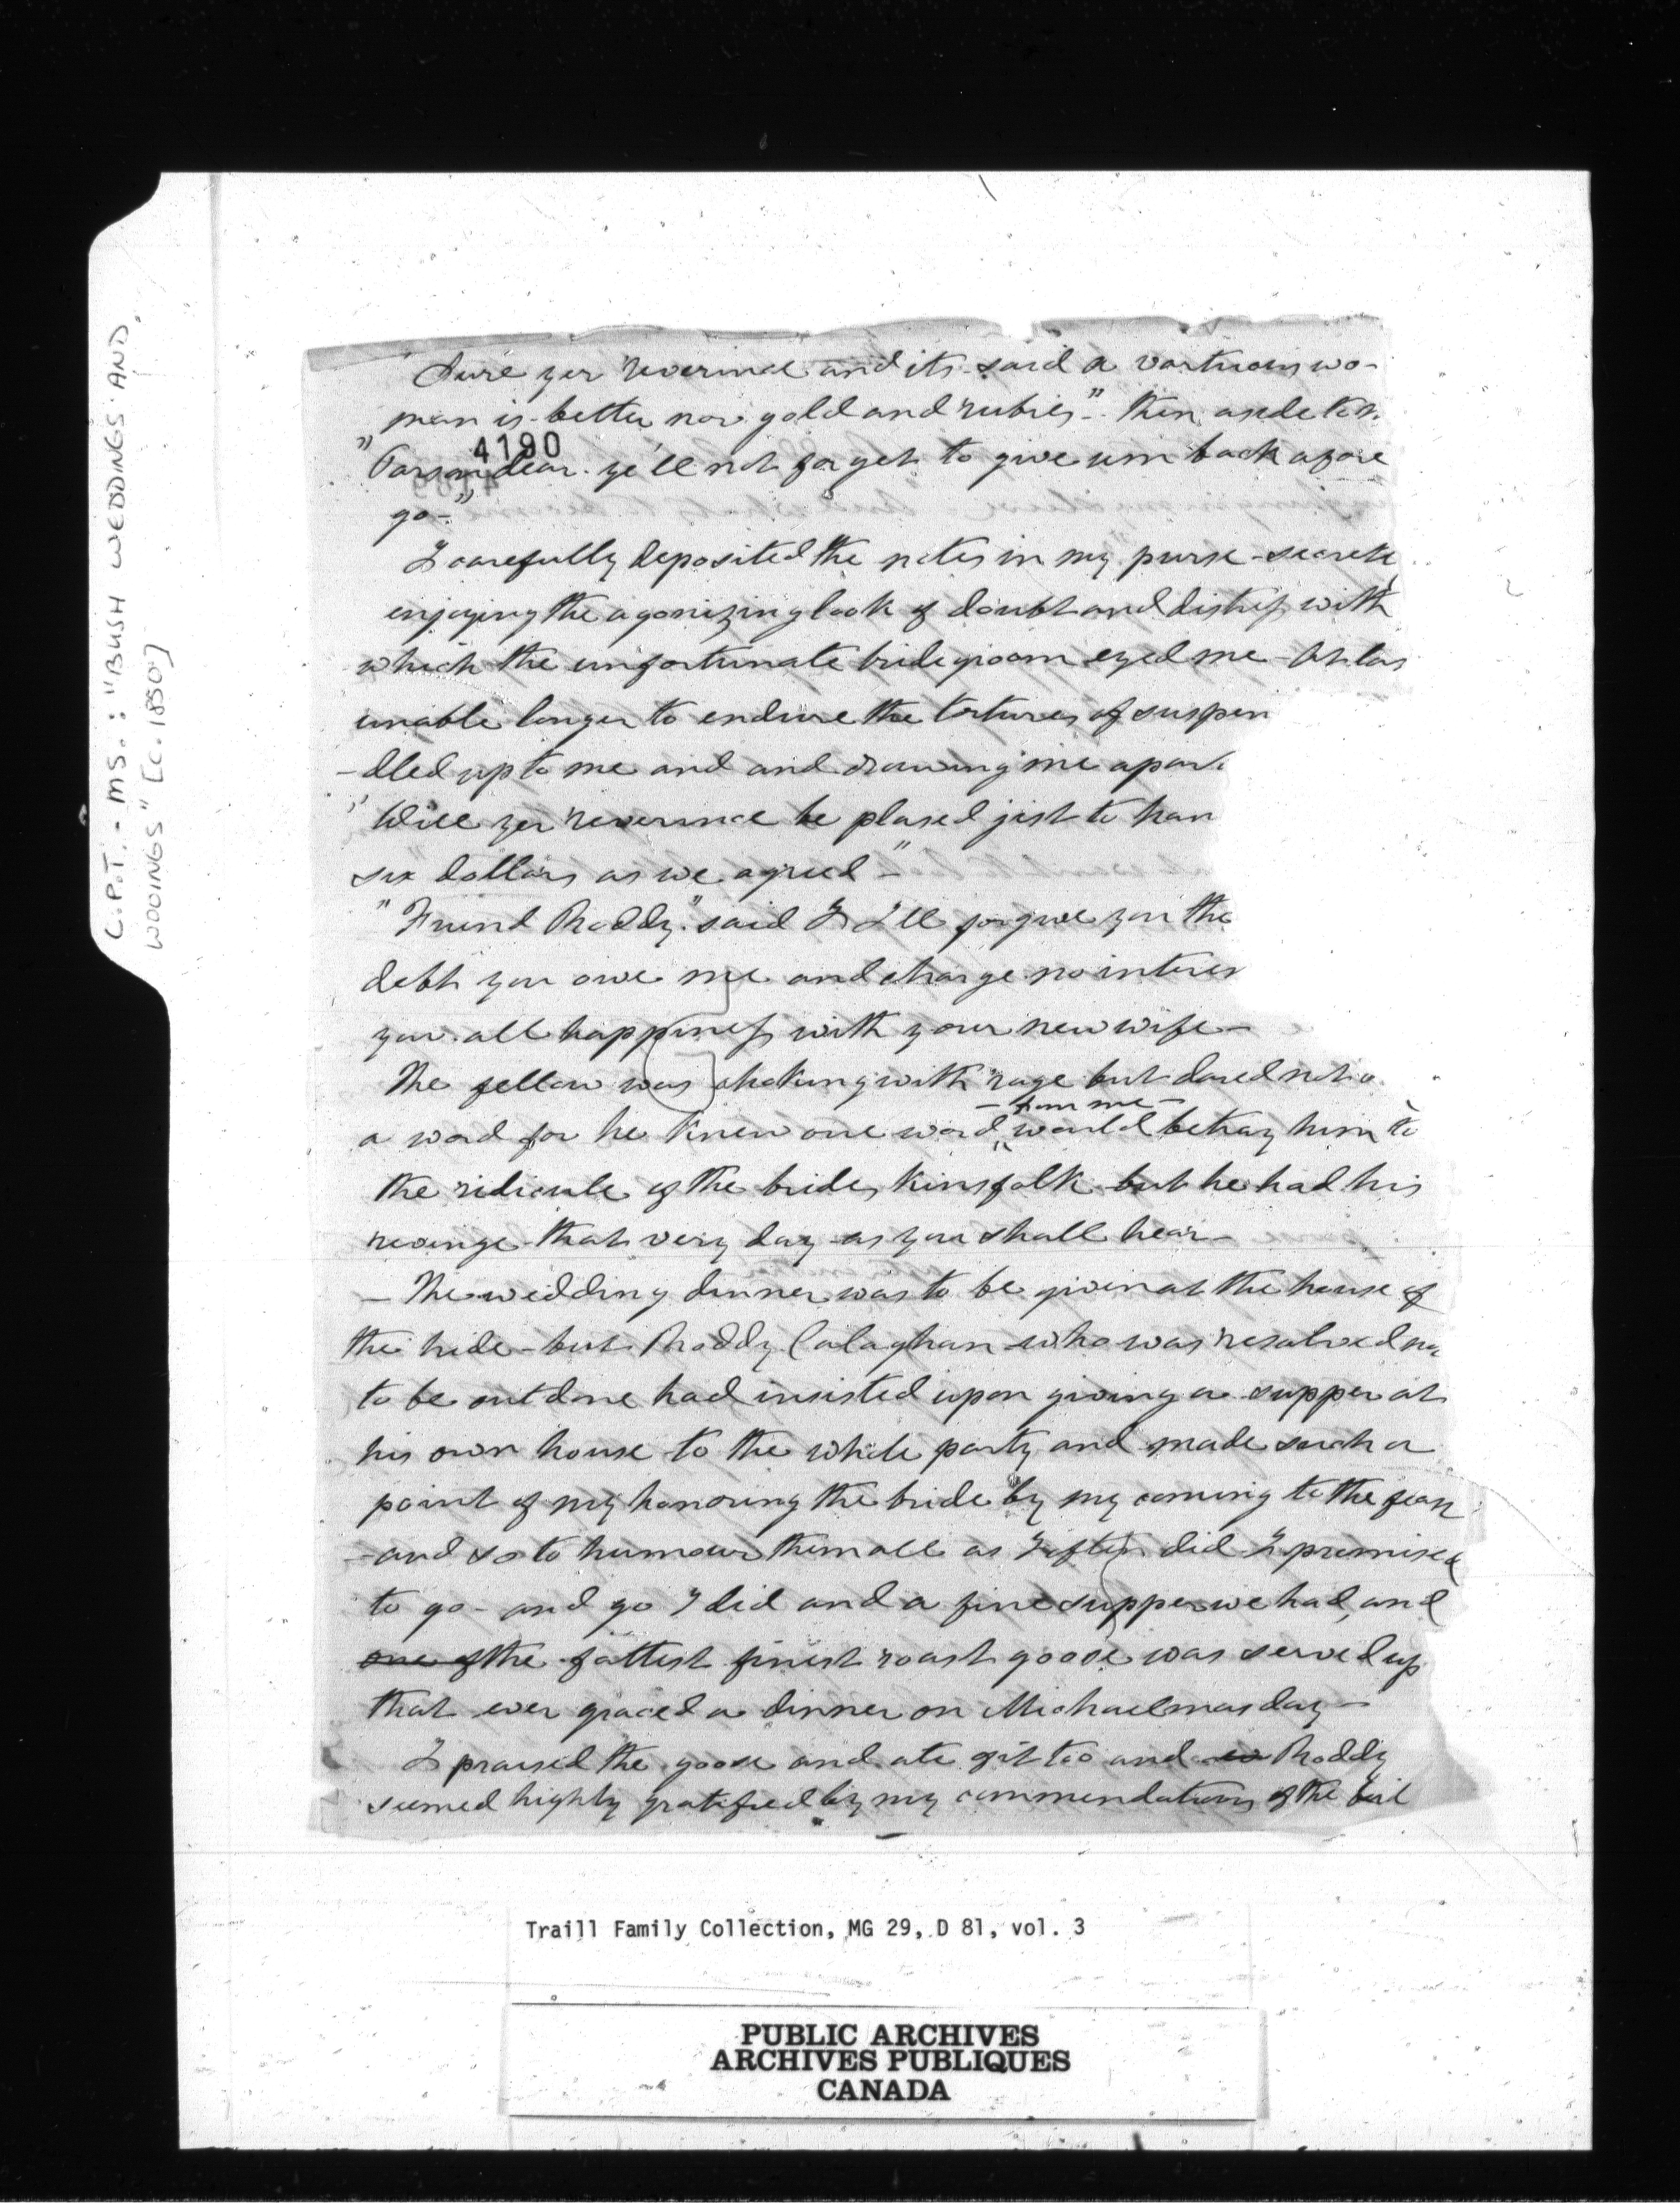 C.P.T. - MS.: "BUSH WEDDINGS AND
WOOINGS" [C. 1850]
"Sure yer reverince and its said a vartuous wo-
man is better nor gold and rubies". then aside to
4190
"Parson dear ye'll not forget to give um back afore
go-"
I carefully deposited the notes in my purse - secretl
enjoying the agonizing look of doubt and distress with
which the unfortunate bridegroom eyed me - At las
unable longer to endure the tortures of suspen
-dled up to me and and drawing me apart
"Will yer reverince be plased jist to han
six dollars as we agreed"-
"Friend Roddy" said I I'll forgive you the
debt you owe me and charge no interes
you all happiness with your new wife -
The fellow was choking with rage but dared not
a word for he knew one word would betray him to
- from me -
the ridicule of the brides kinsfolk but he had his
revenge that very day as you shall hear -
- The wedding dinner was to be given at the house of
the bride - but Roddy Calaghan who was resolved no
to be outdone had insisted upon giving a supper at
his own house to the whole party and made such a
point of my honouring the bride by my coming to the feas
- and so to humour them all as I often did I promised
to go - and go I did and a fine supper we had, and
one of the fattest finest roast goose was served up
that ever graced a dinner on Michaelmas day -
I praised the goose and ate of it too and Roddy
seemed highly gratified by my commendations of the
Traill Family Collection, MG 29, D 81, vol. 3
PUBLIC ARCHIVES
ARCHIVES PUBLIQUES
CANADA